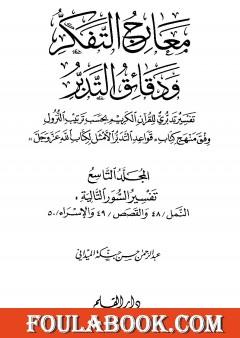 معارج التفكر
ودقائق التدبر
تفسير تدبري للقرآن الكريم بحسب ترتيب النزول
وفق منهج كتاب « قواعد التدبر الأمثل لكتاب الله عز وجل »
المجلد التاسع
تفسير السور التالية :
النمل / ٤٨ والقصص / ٤٩ والإسراء / ٥٠
عبد الرحمن حسن حبنكة الميداني
دار القلم
FOULABOOK.COM